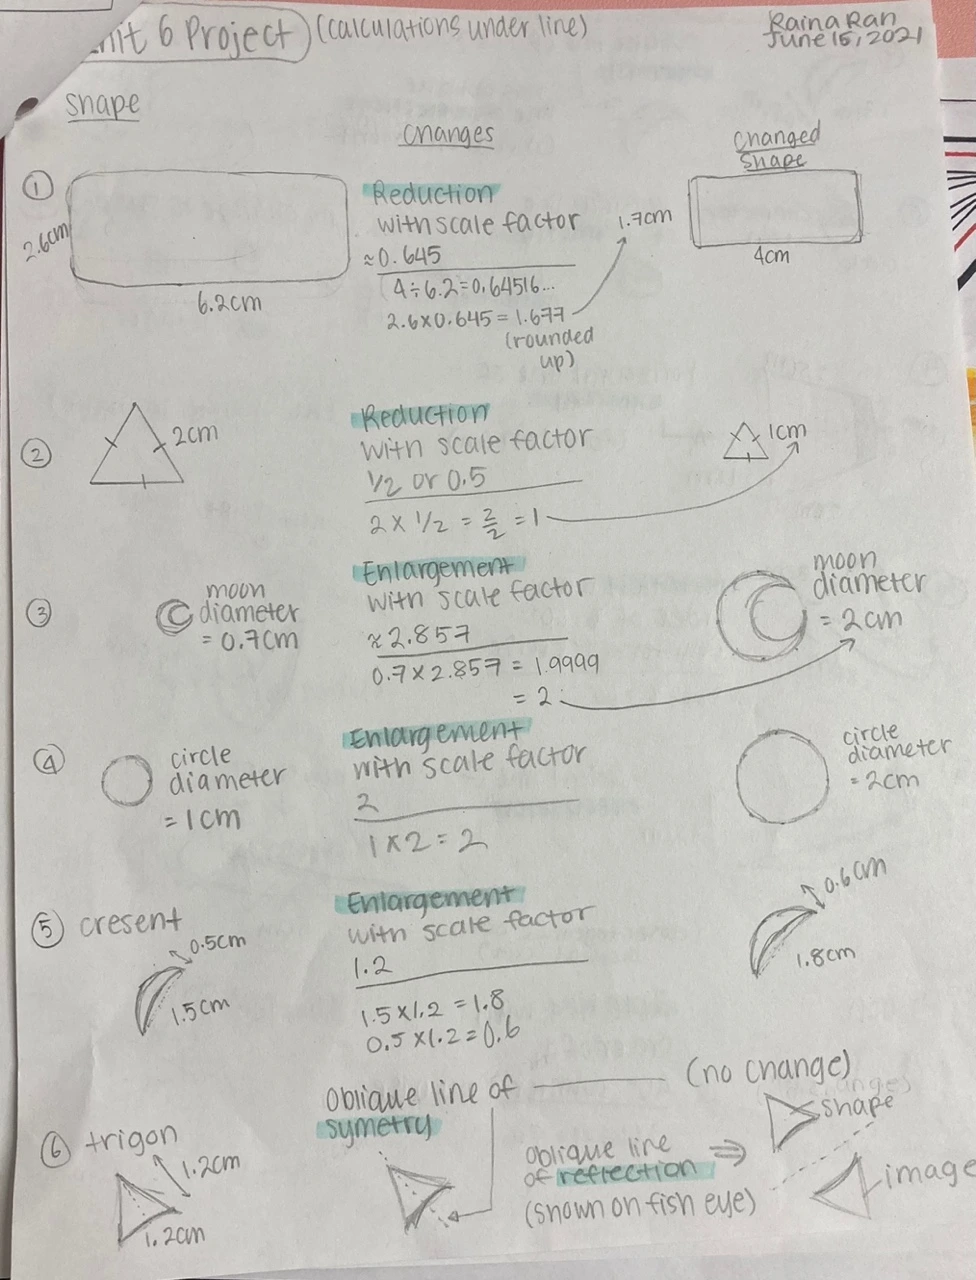 Unit 6 Project (calculations under line)
Raina Ran
June 15, 2021
Shape
Changes
Changed
Shape
1
2.6cm
6.2cm
Reduction
with scale factor
≈0.645
4÷6.2=0.64516...
2.6×0.645=1.677
(rounded
up)
1.7cm
4cm
2
2cm
Reduction
with scale factor
1/2 or 0.5
2 × 1/2 = 2/2 = 1
1cm
3
moon
diameter
= 0.7cm
Enlargement
with scale factor
≈2.857
0.7×2.857 = 1.9999
= 2
moon
diameter
= 2cm
4
circle
diameter
= 1cm
Enlargement
with scale factor
2
1×2=2
circle
diameter
= 2cm
5 cresent
0.5cm
1.5cm
Enlargement
with scale factor
1.2
1.5×1.2=1.8
0.5×1.2=0.6
0.6cm
1.8cm
6 trigon
1.2cm
1.2cm
Oblique line of
symetry
(no change)
oblique line
of reflection ⇒
(shown on fish eye)
shape
image